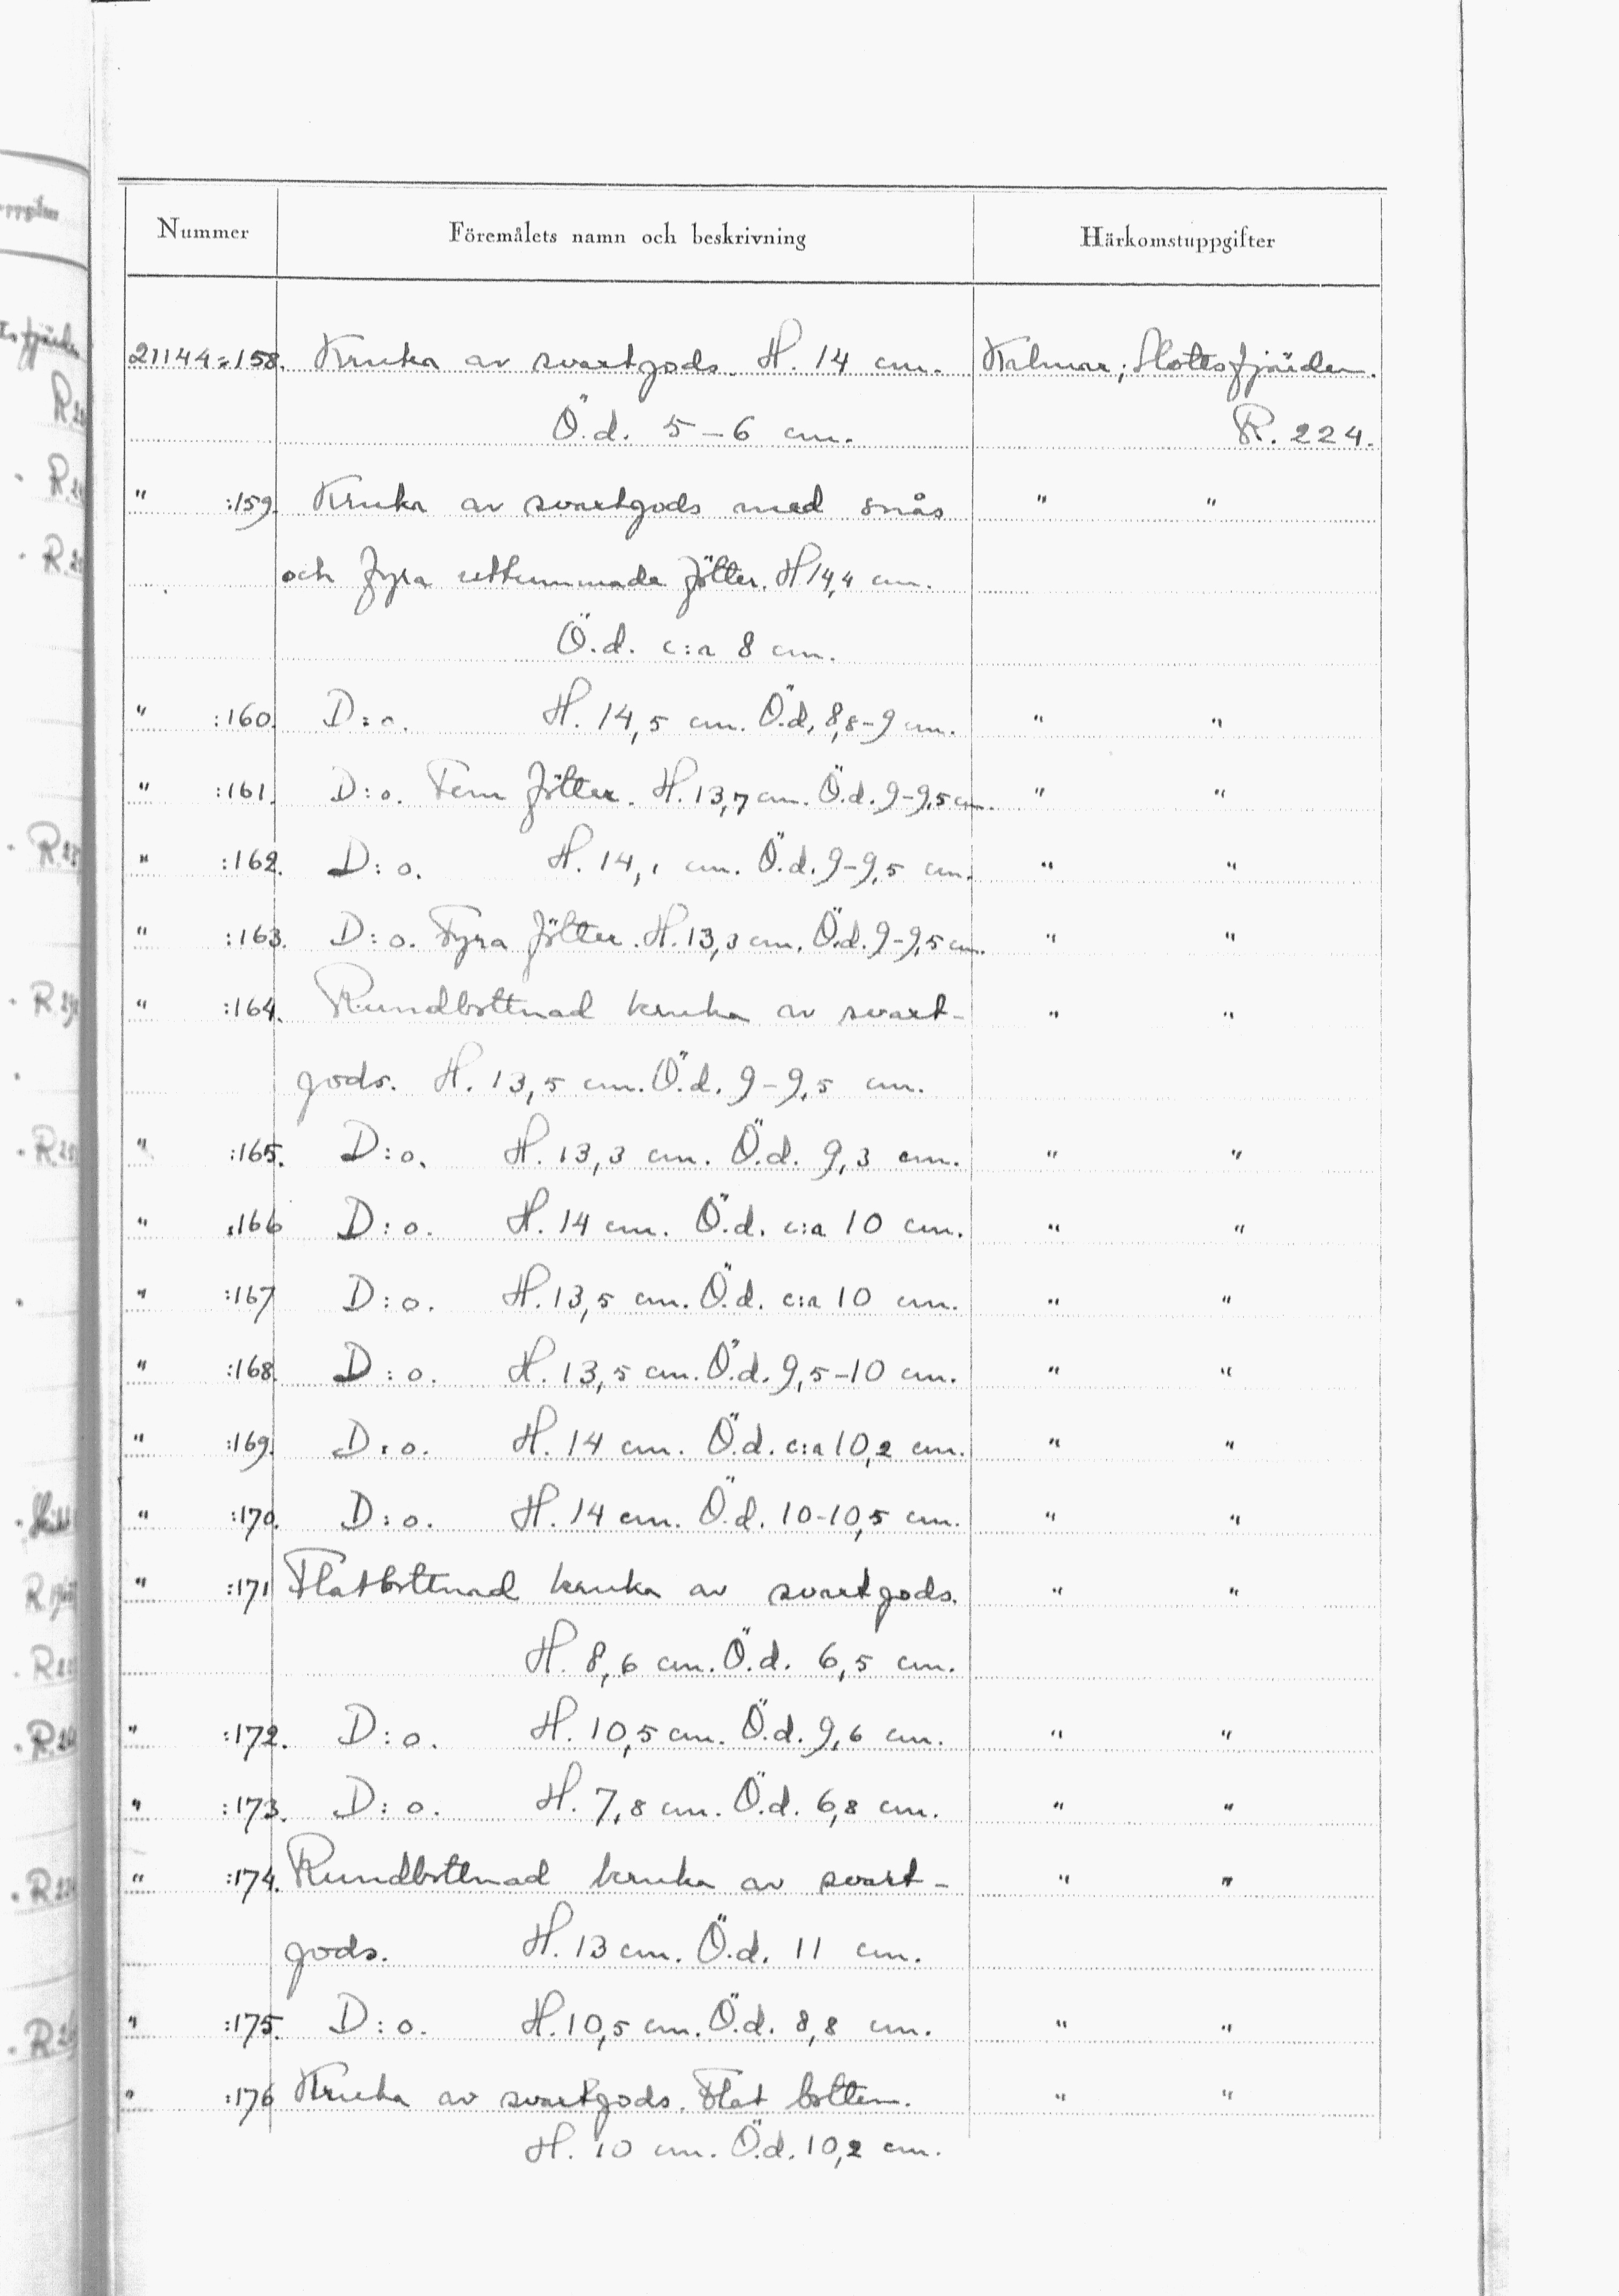 Nummer Föremålets namn och beskrivning Härkomstuppgifter
21144:158. Kruka av svartgods. H. 14 cm. Kalmar; Slottsfjärden.
Ö.d. 5-6 cm. R. 224.
" :159. Kruka av svartgods med snås " "
och fyra uttummade fötter. H 14,4 cm.
Ö.d. c:a 8 cm.
" :160. D:o. H. 14,5 cm. Ö.d. 8,8-9 cm. " "
" :161. D:o. Fem fötter. H. 13,7 cm. Ö.d. 9-9,5 cm. " "
" :162. D:o. H. 14,1 cm. Ö.d. 9-9,5 cm. " "
" :163. D:o. Fyra fötter. H. 13,3 cm. Ö.d. 9-9,5 cm. " "
" :164. Rundbottnad kruka av svart- " "
gods. H. 13,5 cm. Ö.d. 9-9,5 cm.
" :165. D:o. H. 13,3 cm. Ö.d. 9,3 cm. " "
" :166 D:o. H. 14 cm. Ö.d. c:a 10 cm. " "
" :167 D:o. H. 13,5 cm. Ö.d. c:a 10 cm. " "
" :168. D:o. H. 13,5 cm. Ö.d. 9,5-10 cm. " "
" :169. D:o. H. 14 cm. Ö.d. c:a 10,2 cm. " "
" :170. D:o. H. 14 cm. Ö.d. 10-10,5 cm. " "
" :171 Flatbottnad kruka av svartgods. " "
H. 8,6 cm. Ö.d. 6,5 cm.
" :172. D:o. H. 10,5 cm. Ö.d. 9,6 cm. " "
" :173. D:o. H. 7,8 cm. Ö.d. 6,8 cm. " "
" :174. Rundbottnad kruka av svart- " "
gods. H. 13 cm. Ö.d. 11 cm.
" :175. D:o. H. 10,5 cm. Ö.d. 8,8 cm. " "
" :176 Kruka av svartgods. Flat botten. " "
H. 10 cm. Ö.d. 10,2 cm.